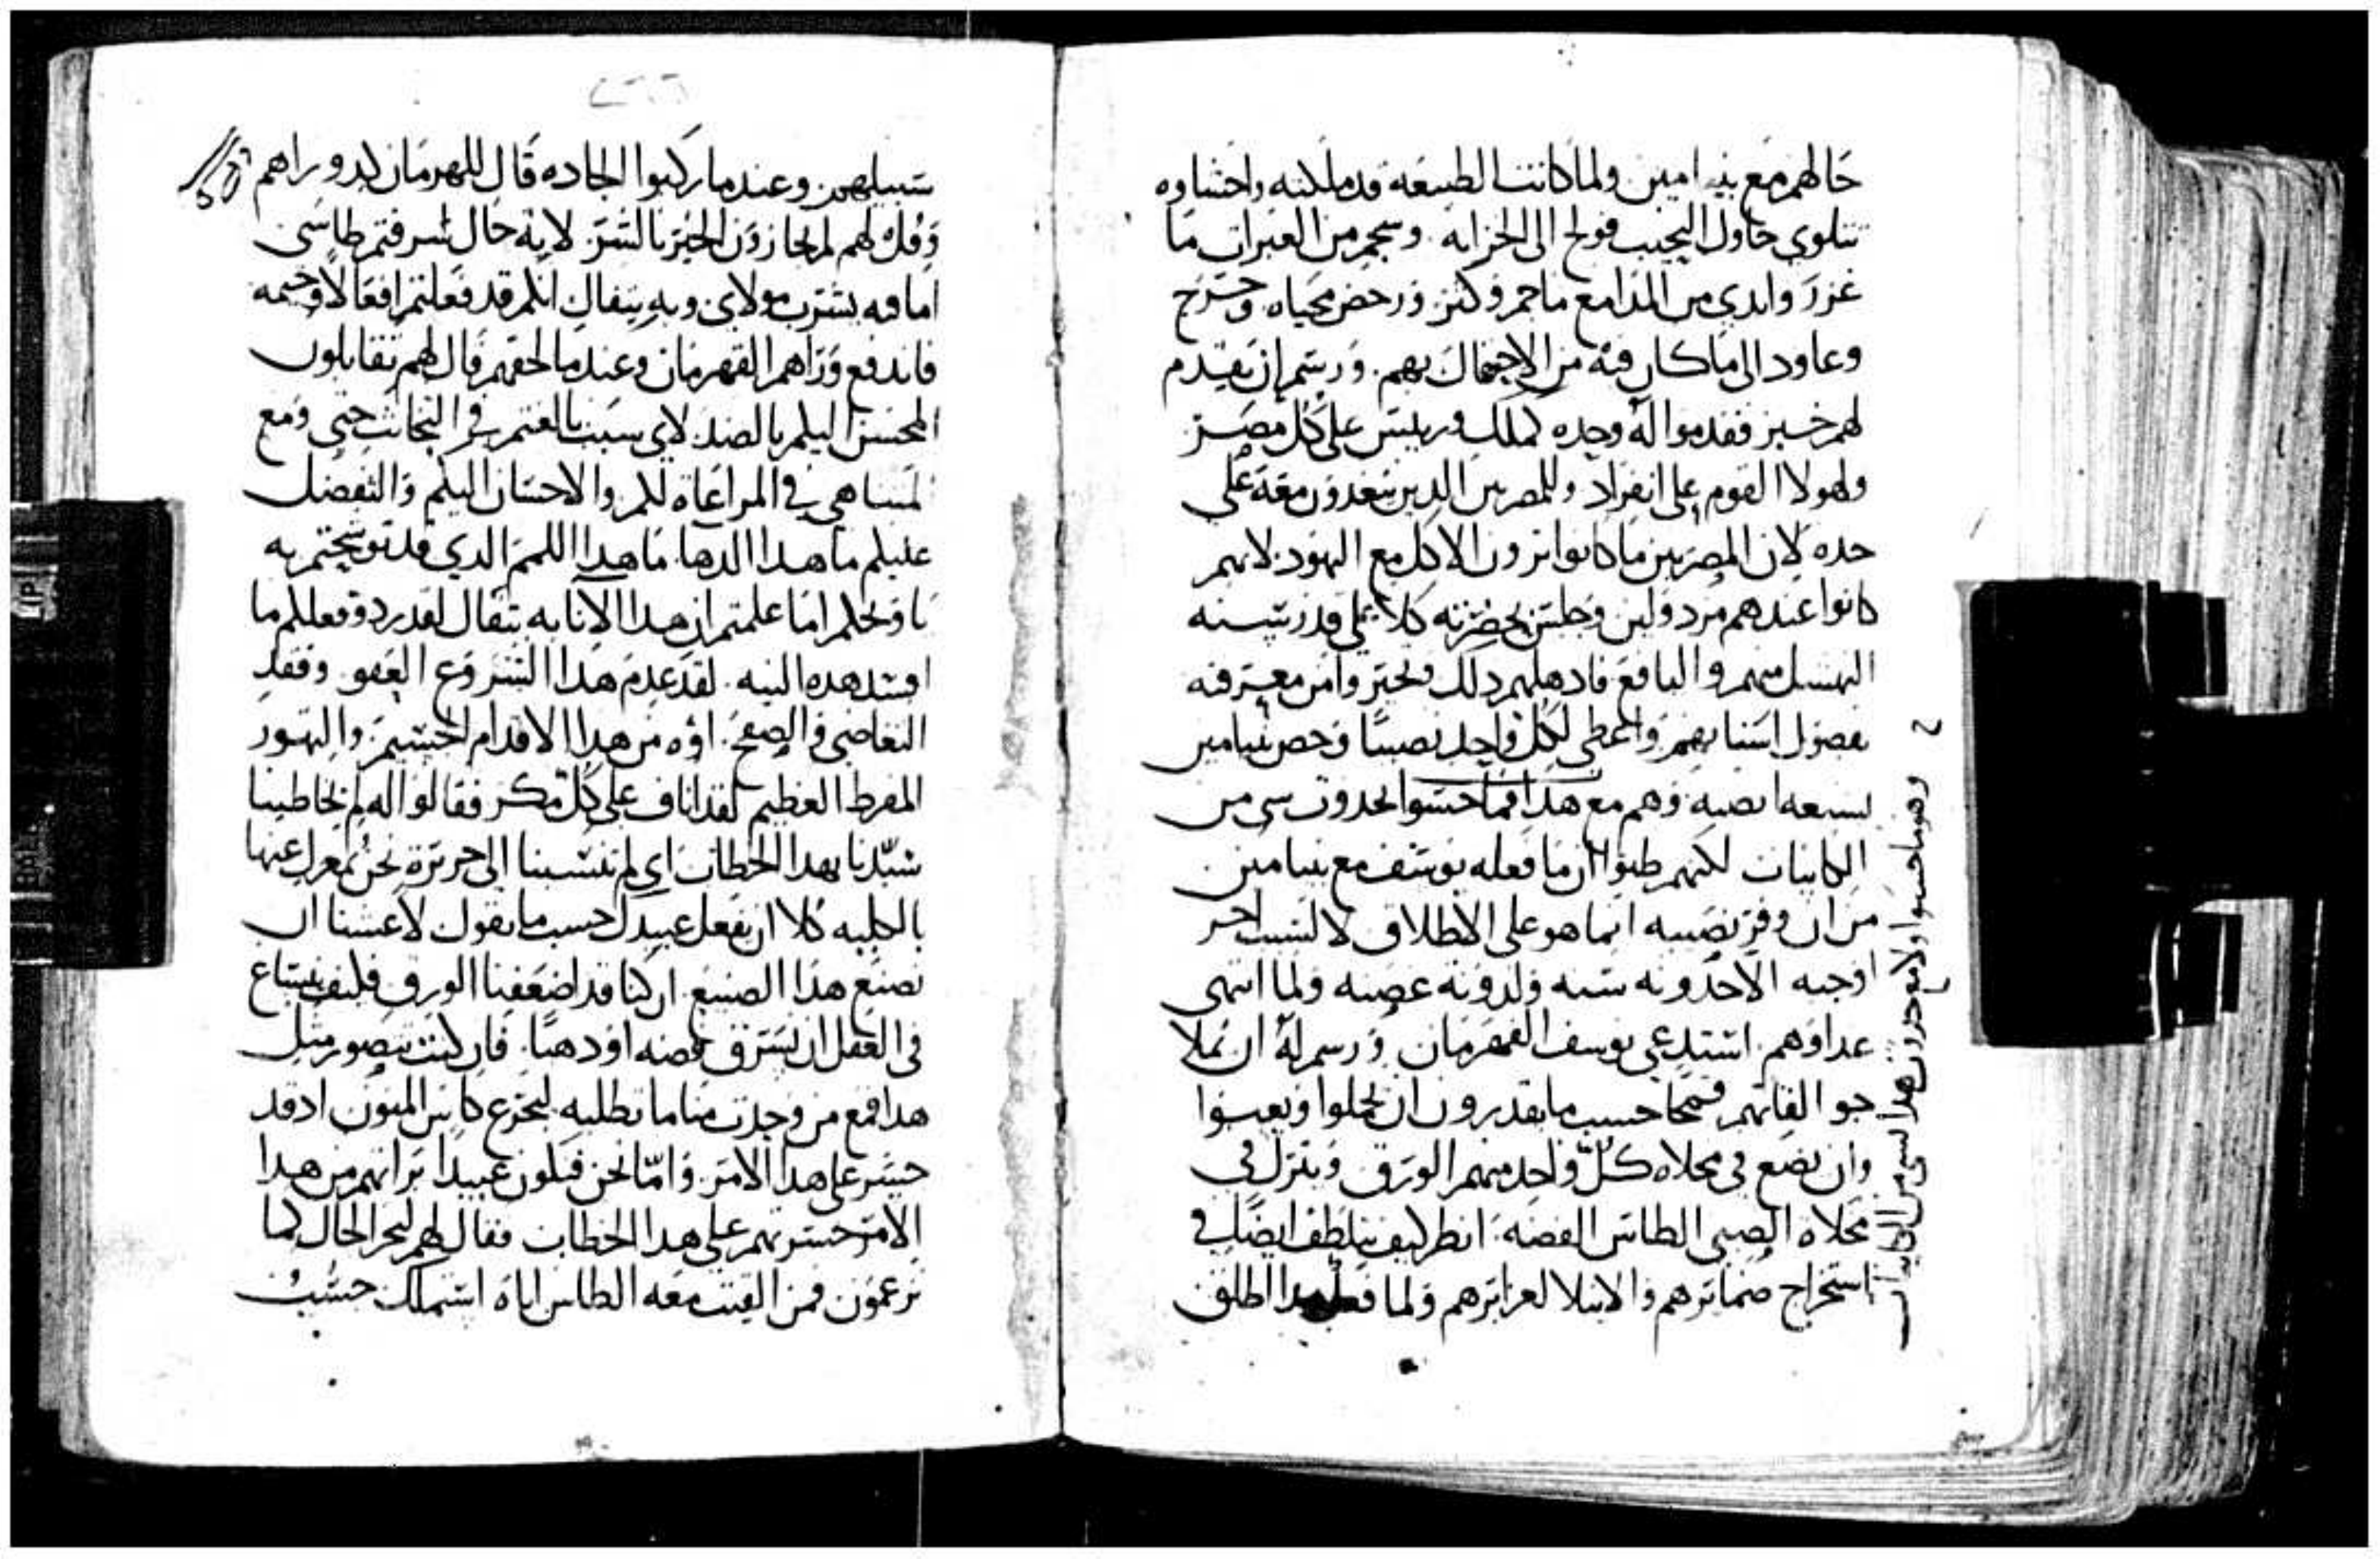 حالهم مع بنيامين ولما كانت الطبيعه قد ملكته واحشاوه
تتلوي حاول النحيب فولج الى الخزانه وسجم من العبرات ما
غزر وابدي من المدامع ماجم وكثر ورحض محياه وخرج
وعاود الى ما كان فيه من الاحتفال بهم ورسم ان يقدم
لهم خبز فقدموا له وحده كملك ورييس على كل مصر
ولهولا القوم على انفراد وللمصريين الدين يتغدون معه على
حده لان المصريين ما كانوا يرون الاكل مع اليهود لانهم
كانوا عندهم مردولين وجلس بحضرته كلا على قدر سنه
المسن منهم واليافع فادهلهم دلك وتحير وامن معرفته
بفصول اسنانهم واعطى لكل واحد نصيبا وخص بنيامين
بسبعه انصبه وهم مع هدا فما حسوا بحدوث شي من
الكاينات لكنهم ظنوا ان ما فعله يوسف مع بنيامين
من ان وفر نصيبه انما هو على الاطلاق لا لسبب اخر
اوجبه الاحدوثه سنه ولدونه غصنه ولما انتهى
غداوهم استدعي يوسف القهرمان ورسم له ان يملا
جوالقاتهم قمحا حسب ما يقدرون ان يحملوا
وان يضع في مخلاه كل واحد منهم الورق وينزل في
مخلاه الصبي الطاس الفضه انظر كيف يتلطف ايضا في
استخراج ضمايرهم والابتلا لغرايزهم ولما فعل هدا اطلق
وهو ما حسوا ولا مع حدوث هدا لشي من الكاينات
سبيلهم وعند ما ركبوا الجاده قال للقهرمان كد وراهم
وقل لهم لم تجازون الخير بالشر لاية حال سرقتم طاسي
اما فيه يشرب مولاي وبه يتفال انكم قد فعلتم افعالا وخيمه
فاندفع وراهم القهرمان وعند ما لحقهم قال لهم تقابلون
المحسن اليكم بالضد لاي سبب بالغتم في التخابث حتى ومع
المتناهي في المراعاه لكم والاحسان اليكم والتفضل
عليكم ما هدا الدها ما هدا اللمم الدي قد توشحتم به
يا ويحكم اما علمتم ان هدا الانا به يتفال لقد رد وفعلكم ما
افسد هده النيه لقد عدم هدا الشروع العفو وفقد
التغاضي والصفح اوه من هدا الاقدام الجسيم والتهور
المفرط العظيم لقد اناف على كل مكر فقالوا له لم تخاطبنا
سيدنا بهدا الخطاب اي لم تنسبنا الى جريرة نحن بمعزل عنها
بالكليه كلا ان يفعل عبيدك حسب ما تقول لا عشنا ان
نصنع هدا الصنيع ان كنا قد اضعفنا الورق فكيف يساع
في العقل ان نسرق فضه او دهبا فان كنت تتصور مثل
هدا فمع من وجدت منا ما تطلبه ليجرع كاس المنون اد قد
جسر على هدا الامر واما نحن فنكون عبيدا براتهم من هدا
الامر جسرتهم على هدا الخطاب فقال لهم ليجر الحال كما
تزعمون فمن القيت معه الطاس اياه استملك حسب